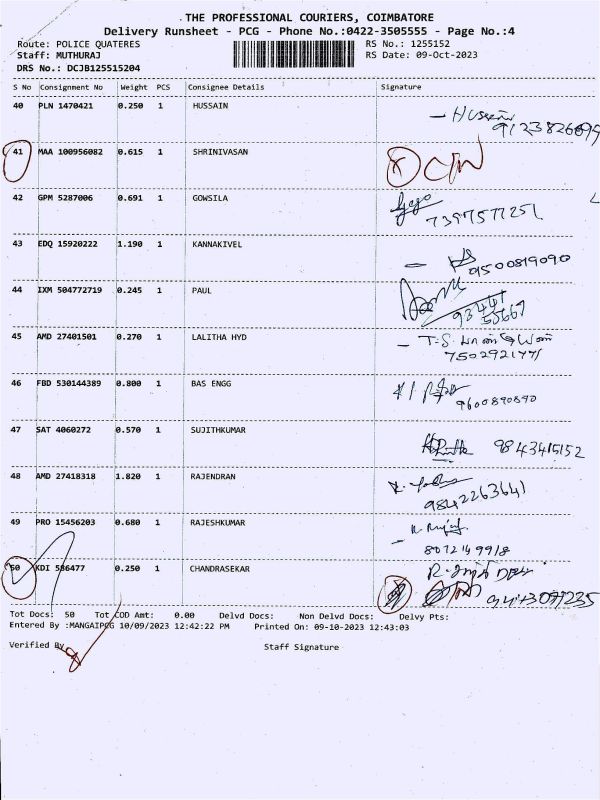 THE PROFESSIONAL COURIERS, COIMBATORE
Delivery Runsheet - PCG - Phone No.:0422-3505555 - Page No.:4
Route: POLICE QUATERES RS No.: 1255152
Staff: MUTHURAJ RS Date: 09-Oct-2023
DRS No.: DCJB125515204
S No Consignment No Weight PCS Consignee Details Signature
40 PLN 1470421 0.250 1 HUSSAIN
41 MAA 100956082 0.615 1 SHRINIVASAN
42 GPM 5287006 0.691 1 GOWSILA
7397577251
43 EDQ 15920222 1.190 1 KANNAKIVEL
9500819090
44 IXM 504772719 0.245 1 PAUL
45 AMD 27401501 0.270 1 LALITHA HYD
46 FBD 530144389 0.800 1 BAS ENGG
9600890890
47 SAT 4060272 0.570 1 SUJITHKUMAR
9843415152
48 AMD 27418318 1.820 1 RAJENDRAN
9842263641
49 PRO 15456203 0.680 1 RAJESHKUMAR
8072149918
50 KDI 586477 0.250 1 CHANDRASEKAR
Tot Docs: 50 Tot COD Amt: 0.00 Delvd Docs: Non Delvd Docs: Delvy Pts:
Entered By :MANGAIPCG 10/09/2023 12:42:22 PM Printed On: 09-10-2023 12:43:03
Verified By Staff Signature